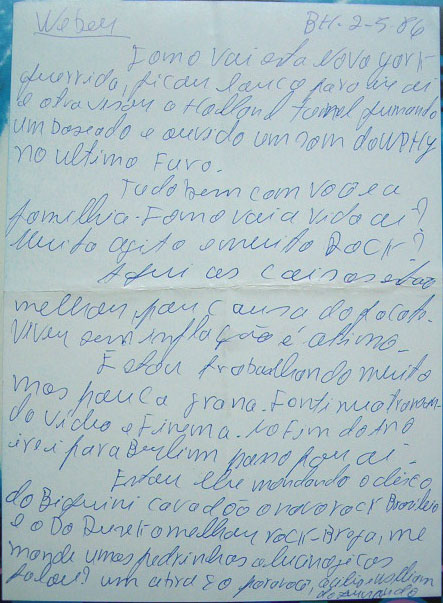 Weber BH. 2-5.86
Como vai esta Nova York
querida, ficou louco para ir ai
e atravessar o Holland tunnel fumando
um baseado e ouvido um som do WPHY
no ultimo Furo.
Tudo bem com voce e a
familhia. Como vai a vida ai?
Muito agito e muito Rock?
Aqui as coisas estão
melhor, por causa do pacote.
Viver sem inflação é otimo.
Estou trabalhando muito
mas pouca grana. Continua
do Video e Cinema. No Fim do Ano
irei para Berlim passo por ai.
Estou lhe mandando o disco
do Biquini cavadão o novo rock Brasileiro
e o Do melhor rock-Brega, me
mande umas pedrinhas
falou? um abraço para voce,